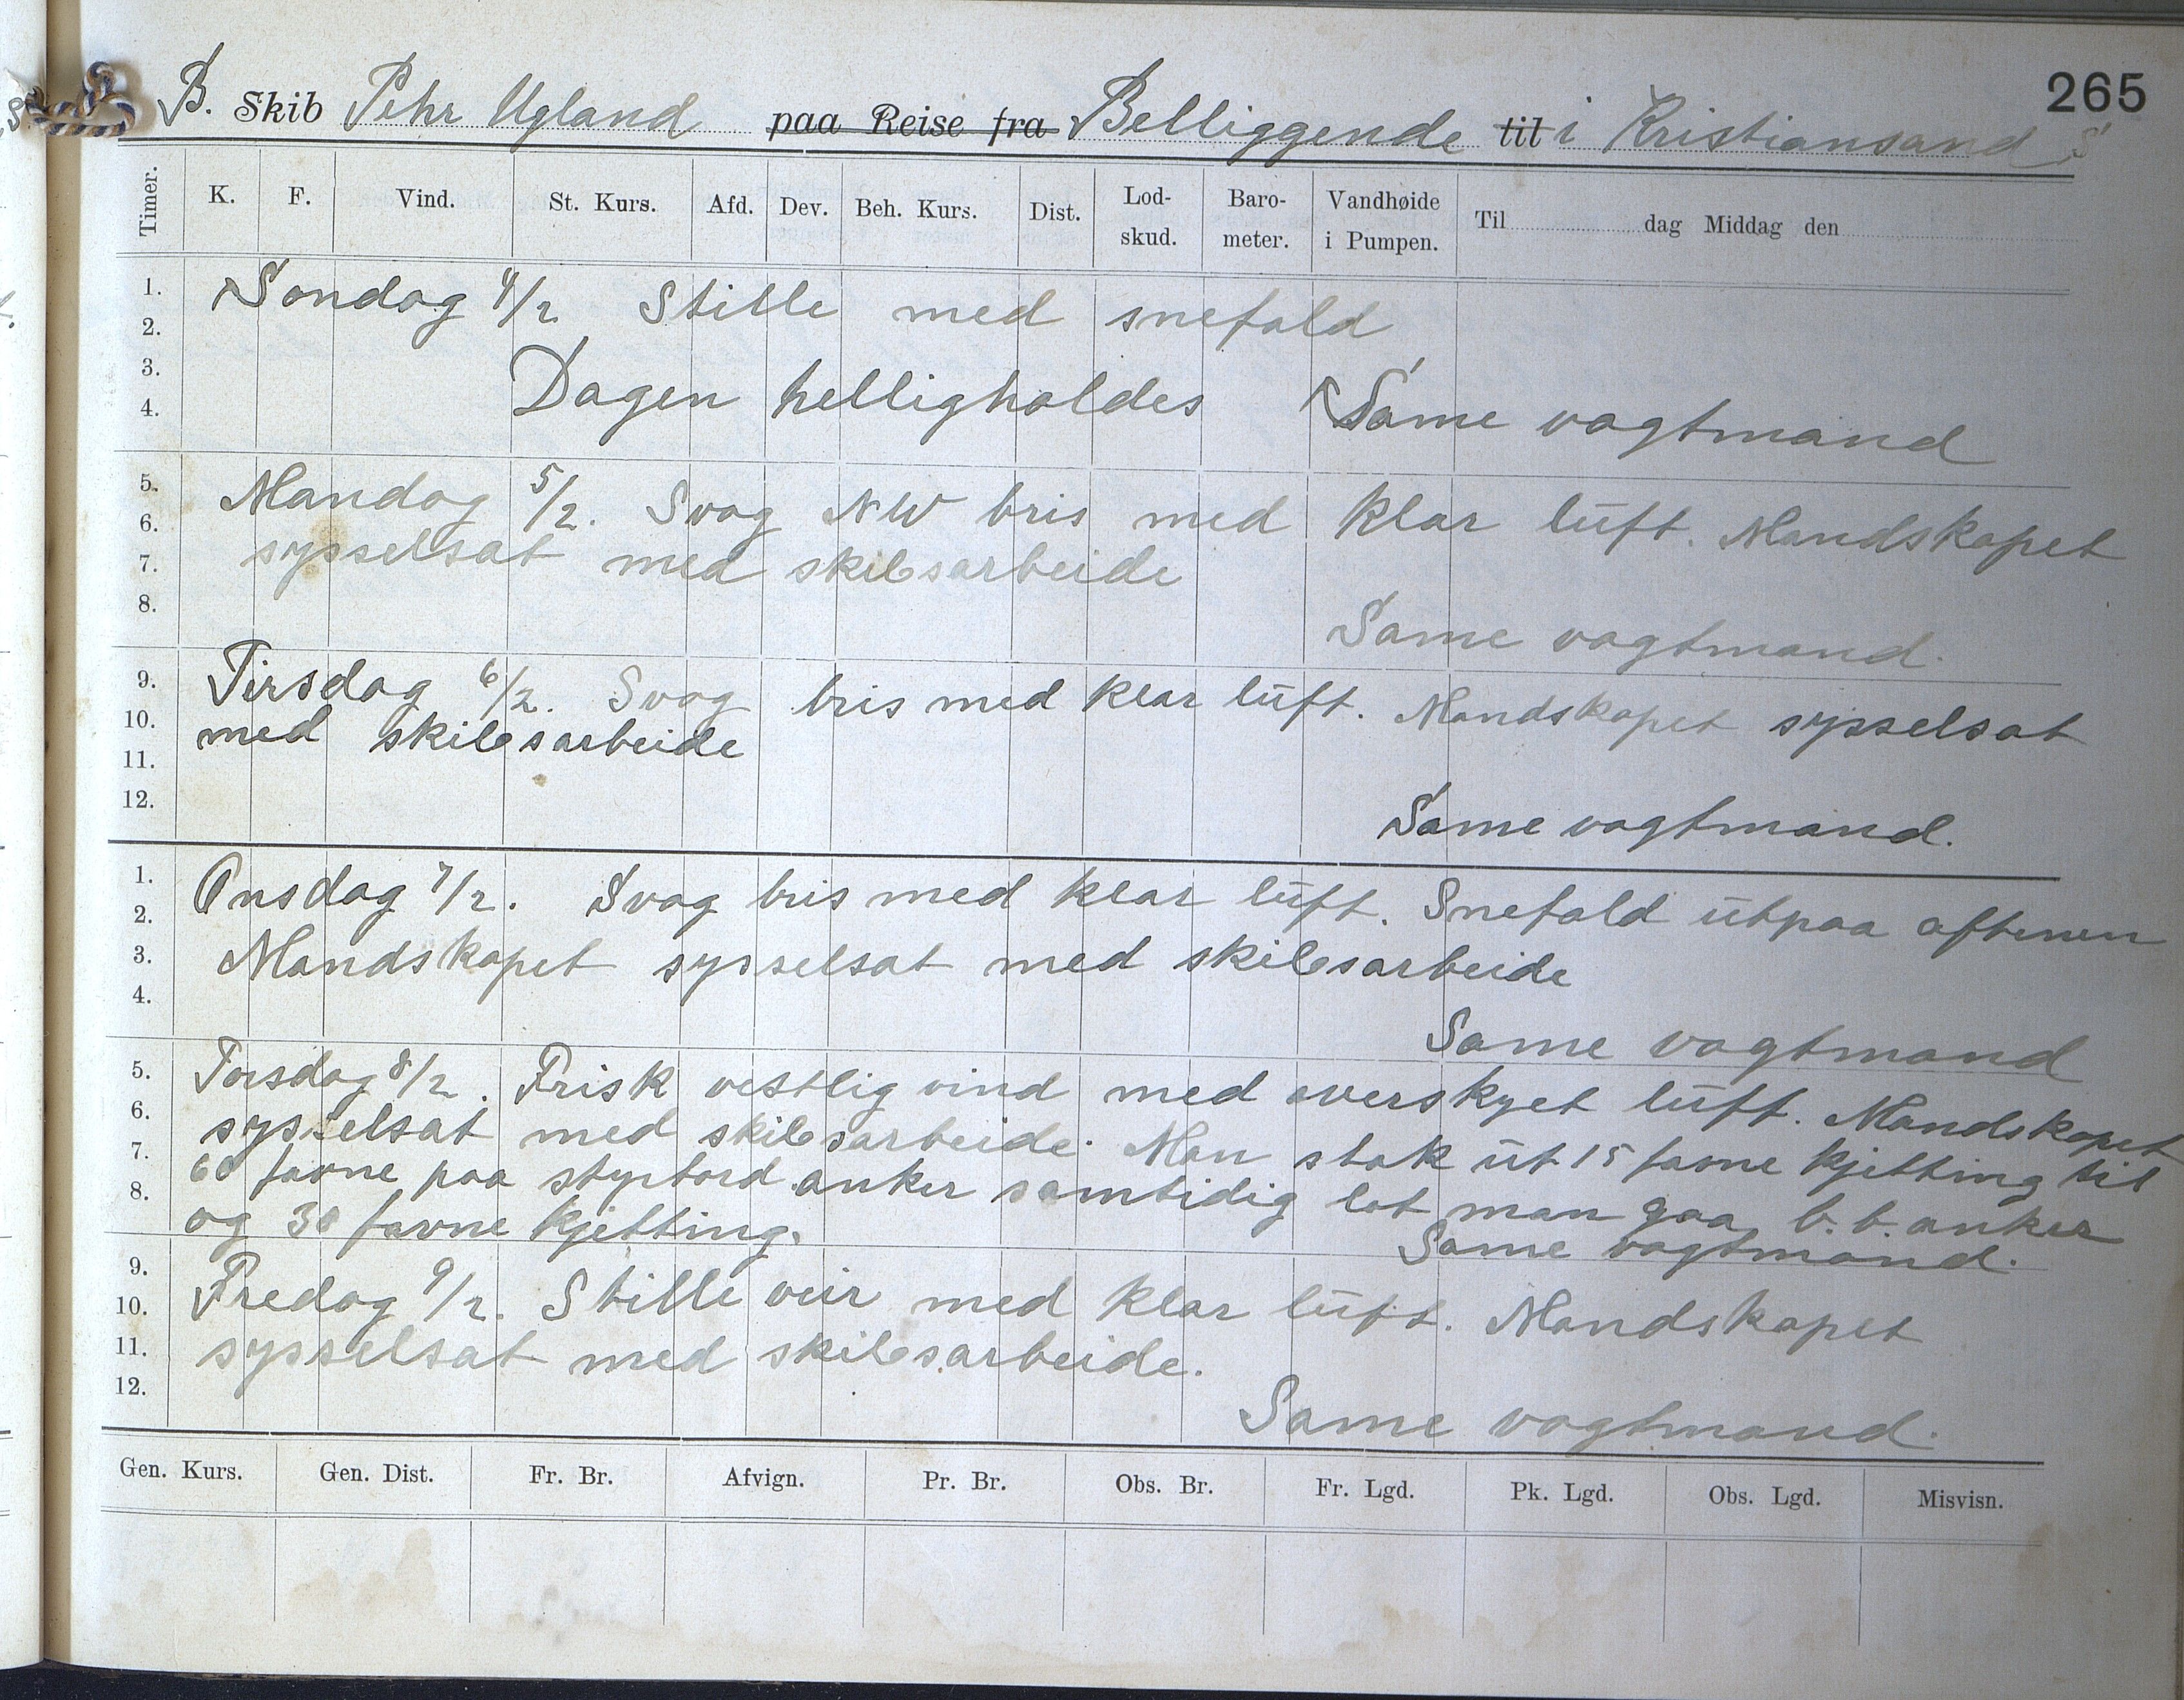 265
B. Skib Pehr Ugland paa Reise fra Belliggende til i Kristiansand S
Timer. K. F. Vind. St. Kurs. Afd. Dev. Beh. Kurs. Dist. Lod-skud. Baro-meter. Vandhøide i Pumpen. Til dag Middag den
1. Søndag 4/2 Stille med snefald
2.
3. Dagen helligholdes Same vagtmand
4.
5. Mandag 5/2. Svag NW bris med klar luft. Mandskapet
6. sysselsat med skibsarbeide
7.
8. Same vagtmand.
9. Tirsdag 6/2. Svag bris med klar luft. Mandskapet sysselsat
10. med skibsarbeide
11.
12. Same vagtmand.
1. Onsdag 7/2. Svag bris med klar luft. Snefald utpaa aftenen
2.
3. Mandskapet sysselsat med skibsarbeide
4. Same vagtmand
5. Torsdag 8/2. Frisk vestlig vind med overskyet luft. Mandskapet
6. sysselsat med skibsarbeide. Man stak ut 15 favne kjetting til
7. 60 favne paa styrbord anker samtidig lot man gaa b.b. anker
8. og 30 favne kjetting. Same vagtmand.
9. Fredag 9/2. Stille veir med klar luft. Mandskapet
10.
11. sysselsat med skibsarbeide.
12. Same vagtmand.
Gen. Kurs. Gen. Dist. Fr. Br. Afvign. Pr. Br. Obs. Br. Fr. Lgd. Pk. Lgd. Obs. Lgd. Misvisn.